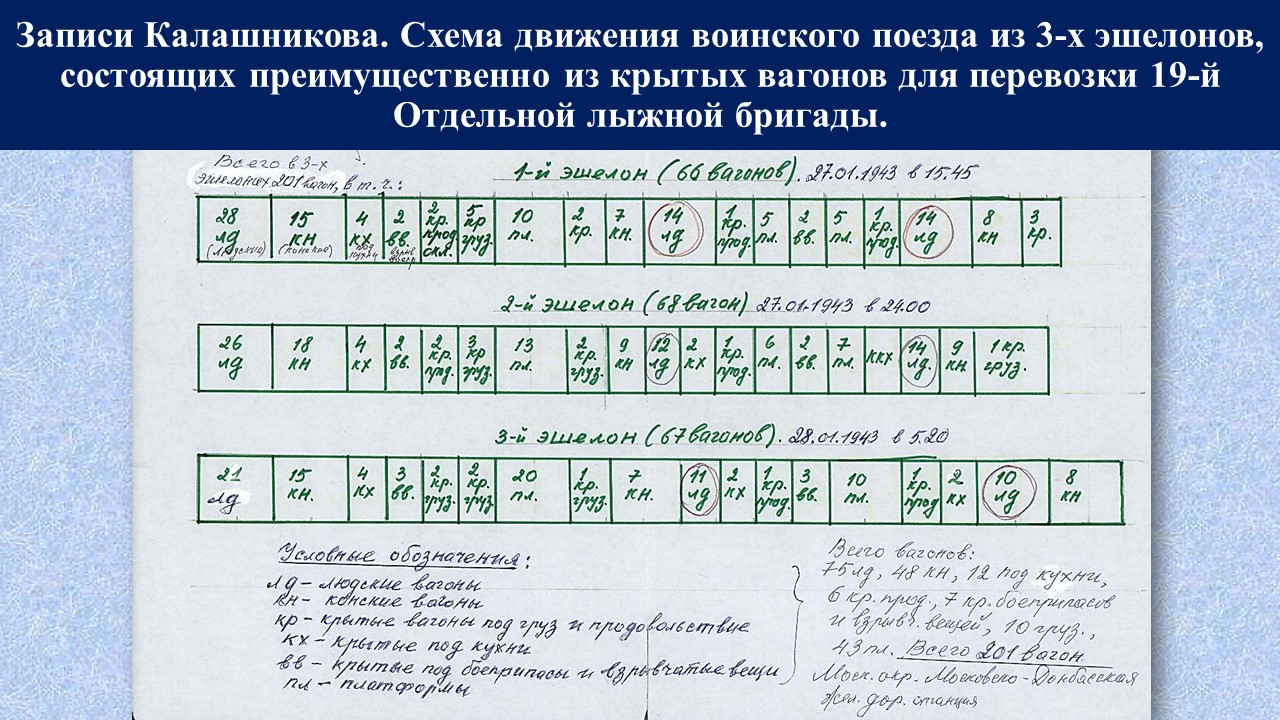 Записи Калашникова. Схема движения воинского поезда из 3-х эшелонов,
состоящих преимущественно из крытых вагонов для перевозки 19-й
Отдельной лыжной бригады.
Всего в 3-х
эшелонах 201 вагон, в т. ч.:
1-й эшелон (66 вагонов). 27.01.1943 в 15.45
28 лд (людские) 15 кн (конские) 4 кх под кухни 2 вв. взрыв 2 кр. прод. скл. 5 кр груз. 10 пл. 2 кр. 7 кн. 14 лд 1 кр. прод. 5 пл. 2 вв. 5 пл. 1 кр. прод. 14 лд 8 кн 3 кр.
2-й эшелон (68 вагон) 27.01.1943 в 24.00
26 лд 18 кн 4 кх 2 вв. 2 кр. прод. 3 кр груз. 13 пл. 2 кр. груз. 9 кн 12 лд 2 кх 1 кр. прод. 6 пл. 2 вв. 7 пл. ккх 14 лд. 9 кн. 1 кр. груз.
3-й эшелон (67 вагонов). 28.01.1943 в 5.20
21 лд 15 кн. 4 кх 3 вв. 2 кр. груз. 2 кр. груз. 20 пл. 1 кр. груз. 7 кн. 11 лд 2 кх 1 кр. прод. 3 вв. 10 пл. 1 кр. прод 2 кх 10 лд 8 кн
Условные обозначения:
лд – людские вагоны
кн – конские вагоны
кр – крытые вагоны под груз и продовольствие
кх – крытые под кухни
вв – крытые под боеприпасы и взрывчатые вещи
пл – платформы
Всего вагонов:
75 лд, 48 кн, 12 под кухни,
6 кр. прод., 7 кр. боеприпасов
и взрывч. вещей, 10 груз.,
43 пл. Всего 201 вагон.
Моск. окр. Московско-Донбасская
жел. дор. станция